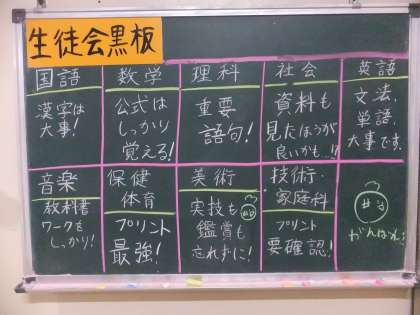 生徒会黒板
国語
漢字は
大事!
数学
公式は
しっかり
覚える!
理科
重要
語句!
社会
資料も
見たほうが
良いかも…!?
英語
文法、
単語、
大事です。
音楽
教科書
ワークを
しっかり!
保健
体育
プリント
最強!
美術
実技も
鑑賞も
忘れずに!
技術・
家庭科
プリント
要確認!
がんばれ!